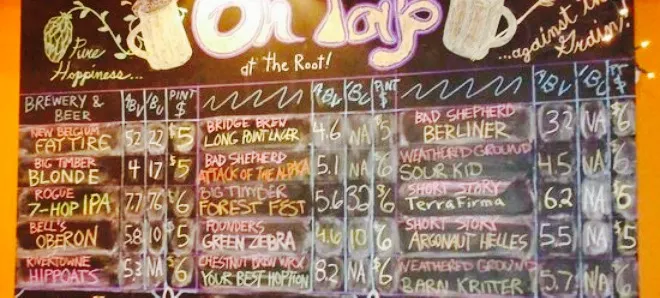 On Tap
at the Root!
Pure
Hoppiness...
...against the
Grain!
BREWERY &
BEER
ABV IBU PINT
$
ABV IBU PINT
$
ABV IBU $
NEW BELGIUM
FAT TIRE 5.2 22 $5
BIG TIMBER
BLONDE 4 17 $5
ROGUE
7-HOP IPA 7.7 76 $6
BELL'S
OBERON 5.8 10 $5
RIVERTOWNE
HIPPOATS 5.3 NA $6
BRIDGE BREW
LONG POINT LAGER 4.6 NA $5
BAD SHEPHERD
ATTACK OF THE ALPACA 5.1 NA $6
BIG TIMBER
FOREST FEST 5.6 32 $6
FOUNDERS
GREEN ZEBRA 4.6 10 $6
CHESTNUT BREW WRX
YOUR BEST HOPTION 8.2 NA $6
BAD SHEPHERD
BERLINER 3.2 NA $6
WEATHERED GROUND
SOUR KID 4.5 NA $6
SHORT STORY
Terra Firma 6.2 NA $5
SHORT STORY
ARGONAUT HELLES 5.5 NA $5
WEATHERED GROUND
BARN KRITTER 5.7 NA $6